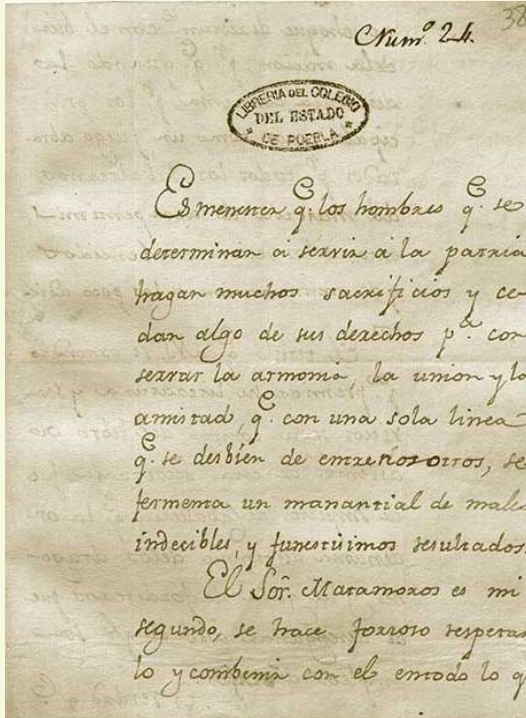 Num.o 24.
38
LIBRERIA DEL COLEGIO
DEL ESTADO
DE PUEBLA
Es menester q.e los hombres q.e se
determinan á servir á la patria
hagan muchos sacrificios y ce-
dan algo de sus derechos p.a con
servar la armonia, la union y la
amistad, q.e con una sola linea
q.e se desbien de entre nosotros, se
fermenta un manantial de males
indecibles, y funestisimos resultados.
El Sor. Matamoros es mi
segundo, se hace forzoso respetar
lo y combenir con el entodo lo q